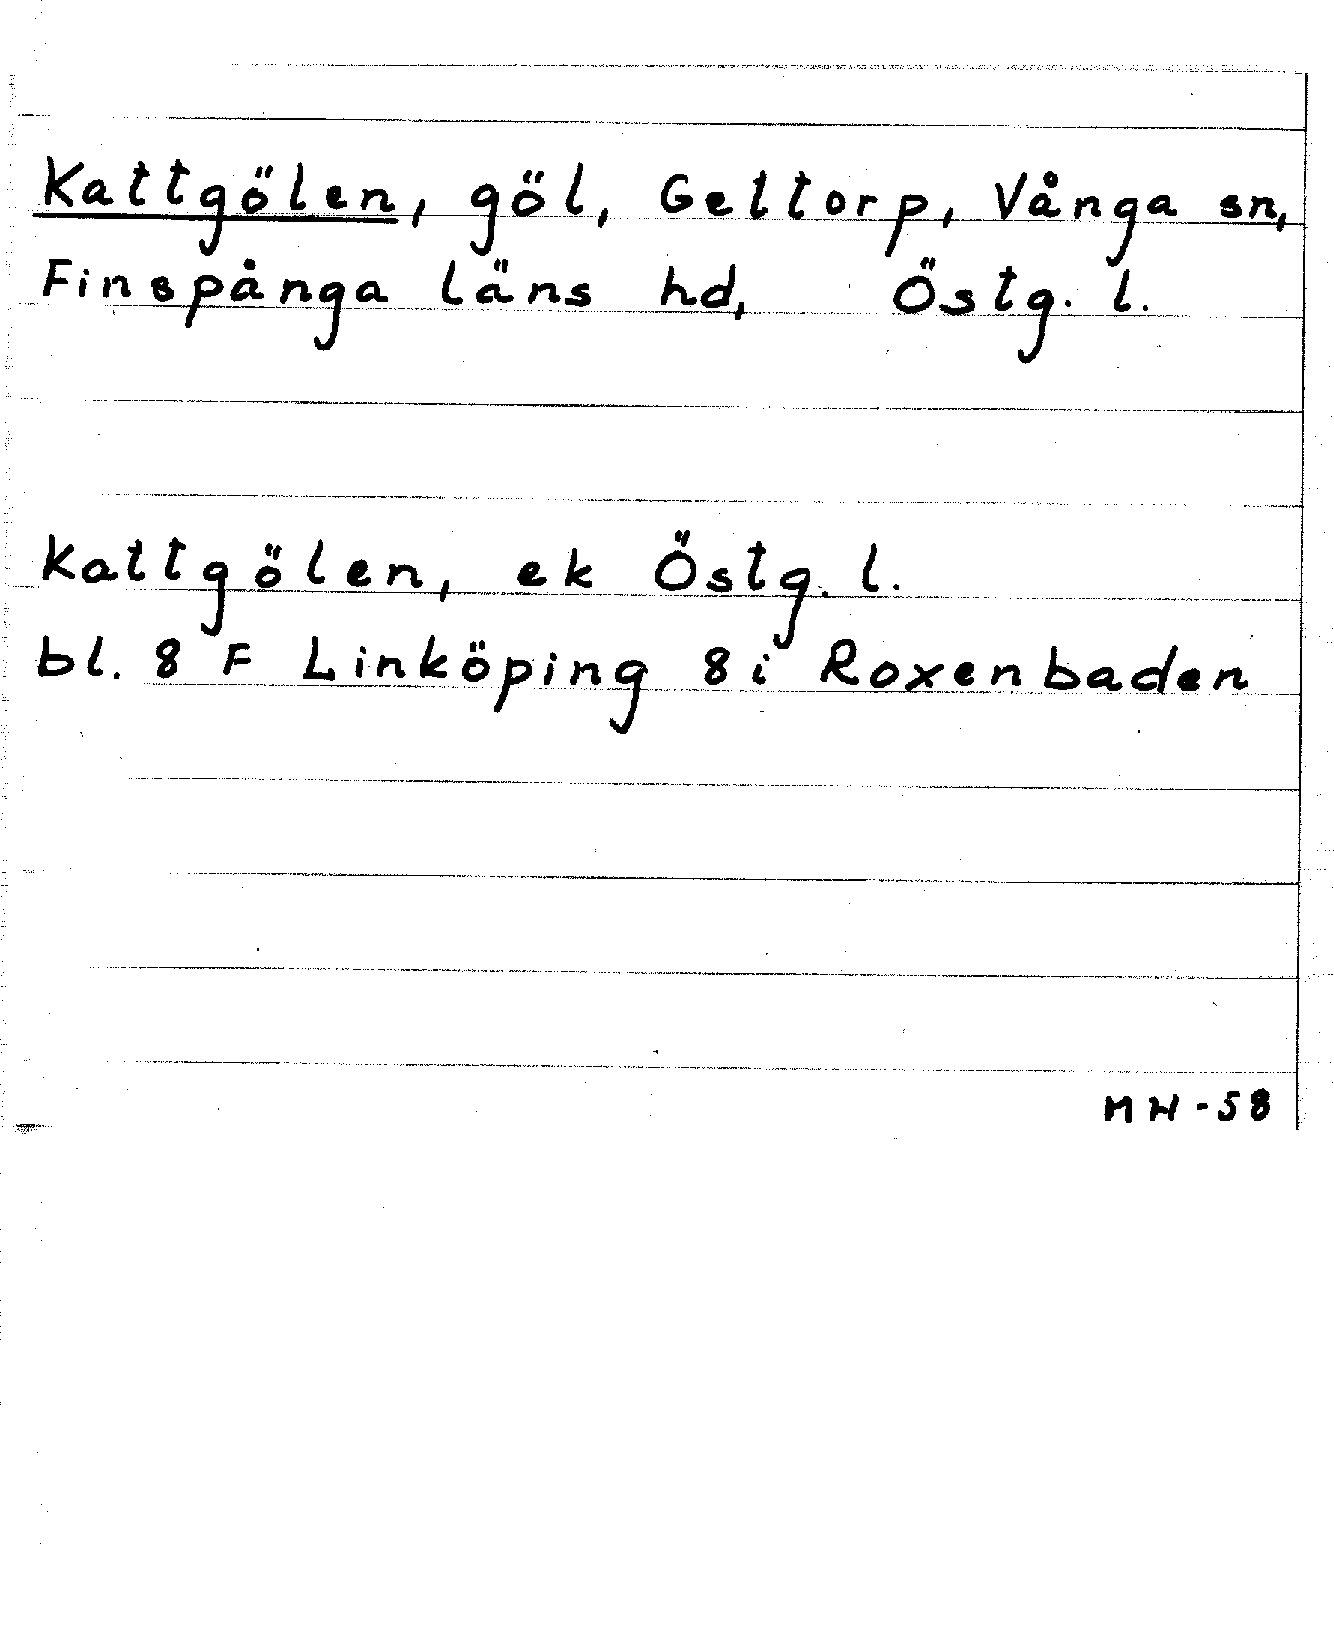 Kattgölen, göl, Geltorp, Vånga sn,
Finspånga läns hd, Östg. l.
Kattgölen, ek Östg. l.
bl. 8 F Linköping 8 i Roxenbaden
MH-58